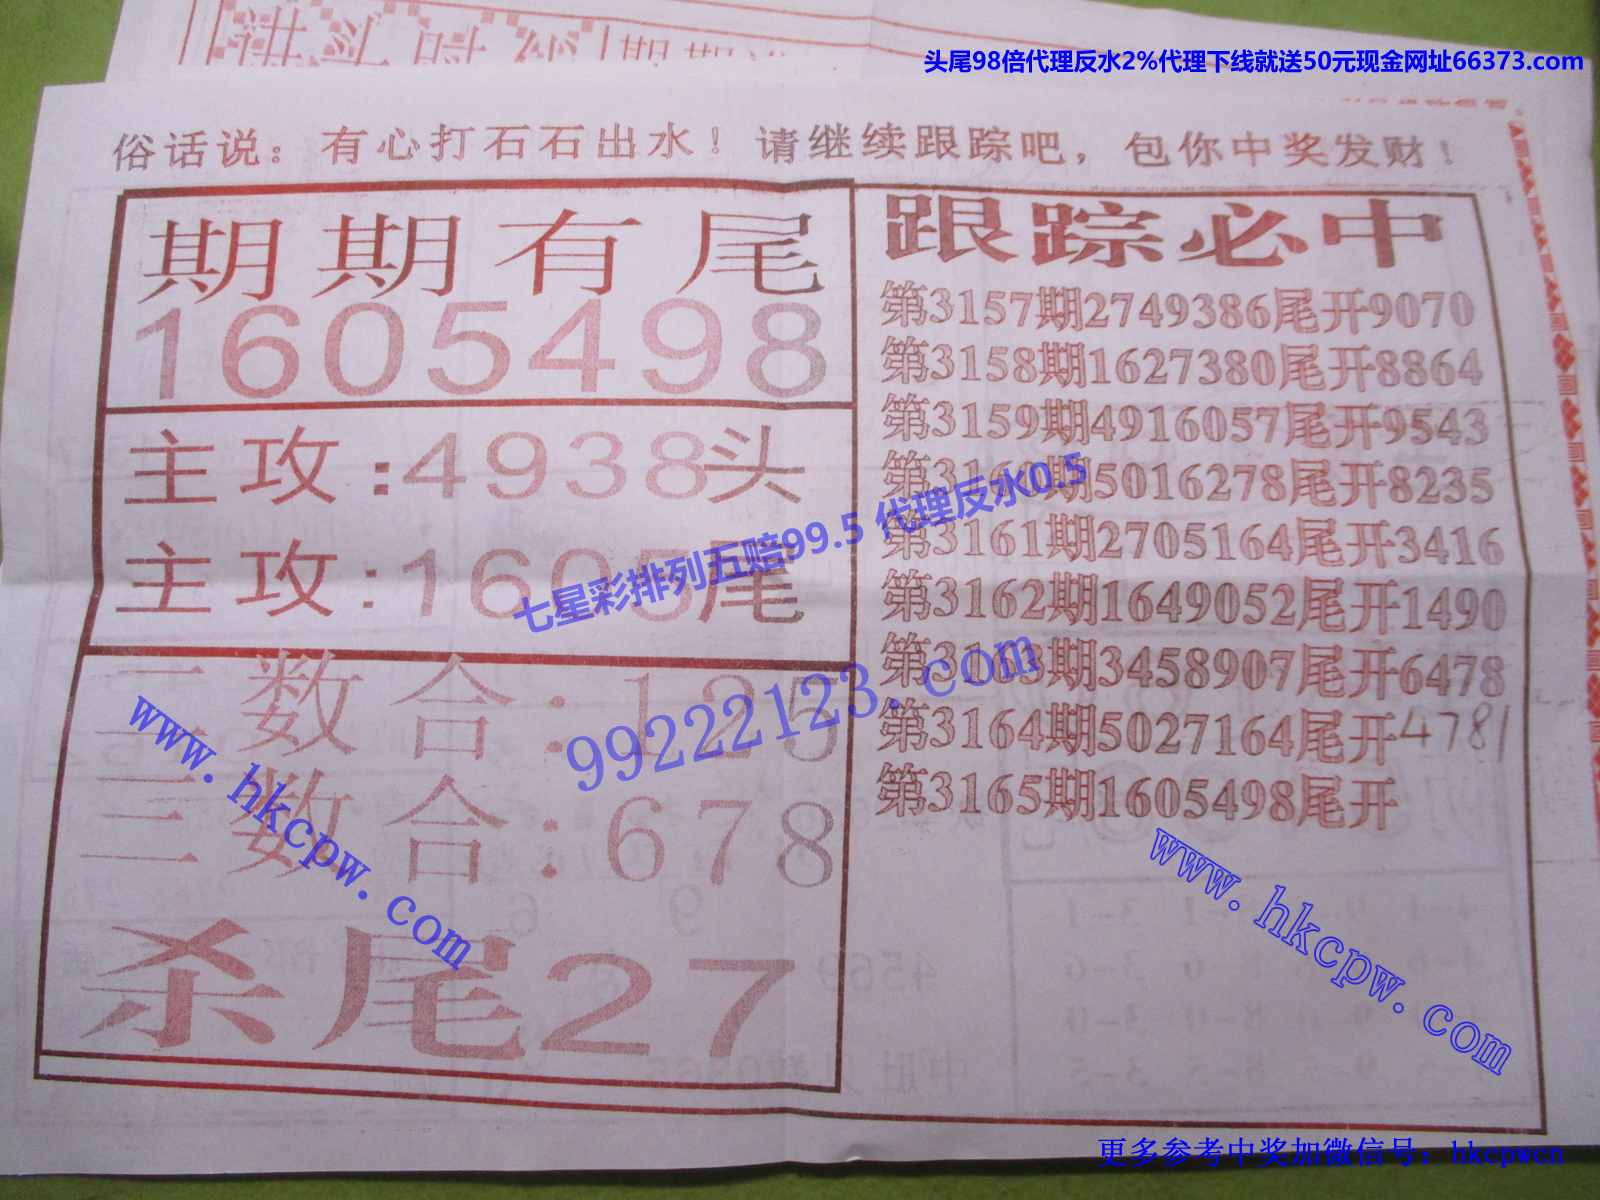 头尾98倍代理反水2%代理下线就送50元现金网址66373.com
俗话说：有心打石石出水！请继续跟踪吧，包你中奖发财！
期期有尾
1605498
主攻:4938头
主攻:1605尾
二数合:125
三数合:678
杀尾27
跟踪必中
第3157期2749386尾开9070
第3158期1627380尾开8864
第3159期4916057尾开9543
第3160期5016278尾开8235
第3161期2705164尾开3416
第3162期1649052尾开1490
第3163期3458907尾开6478
第3164期5027164尾开4781
第3165期1605498尾开
七星彩排列五赔99.5 代理反水0.5
99222123.com
www.hkcpw.com
www.hkcpw.com
更多参考中奖加微信号：hkcpwcn